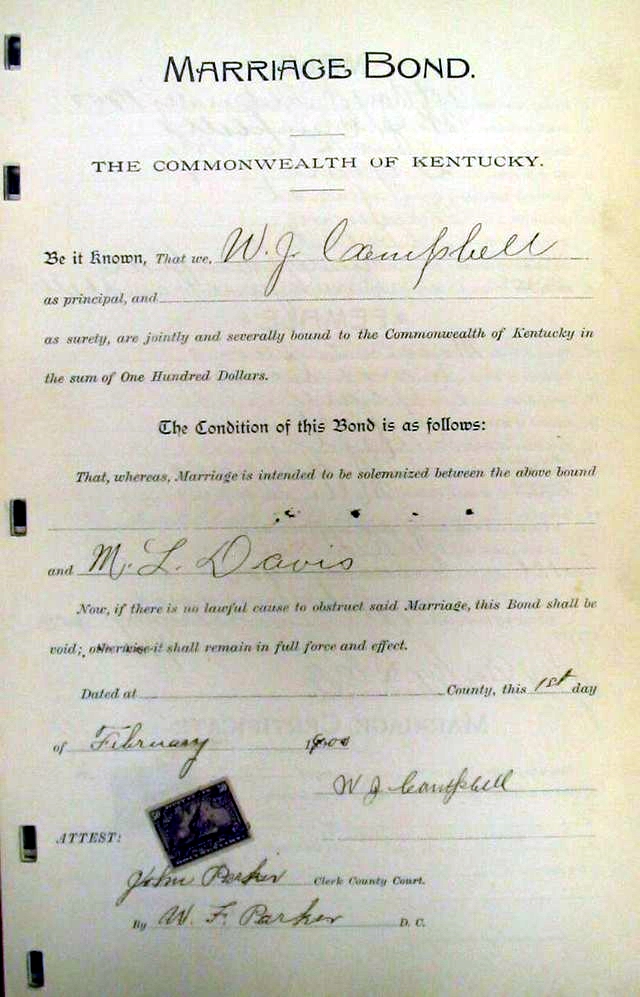 MARRIAGE BOND.
THE COMMONWEALTH OF KENTUCKY.
Be it Known, That we, W. J. Campbell
as principal, and
as surety, are jointly and severally bound to the Commonwealth of Kentucky in
the sum of One Hundred Dollars.
The Condition of this Bond is as follows:
That, whereas, Marriage is intended to be solemnized between the above bound
and M. L. Davis
Now, if there is no lawful cause to obstruct said Marriage, this Bond shall be
void; otherwise it shall remain in full force and effect.
Dated at County, this 1st day
of February 1900
W J Campbell
ATTEST:
John Parker Clerk County Court.
By W. F. Parker D. C.